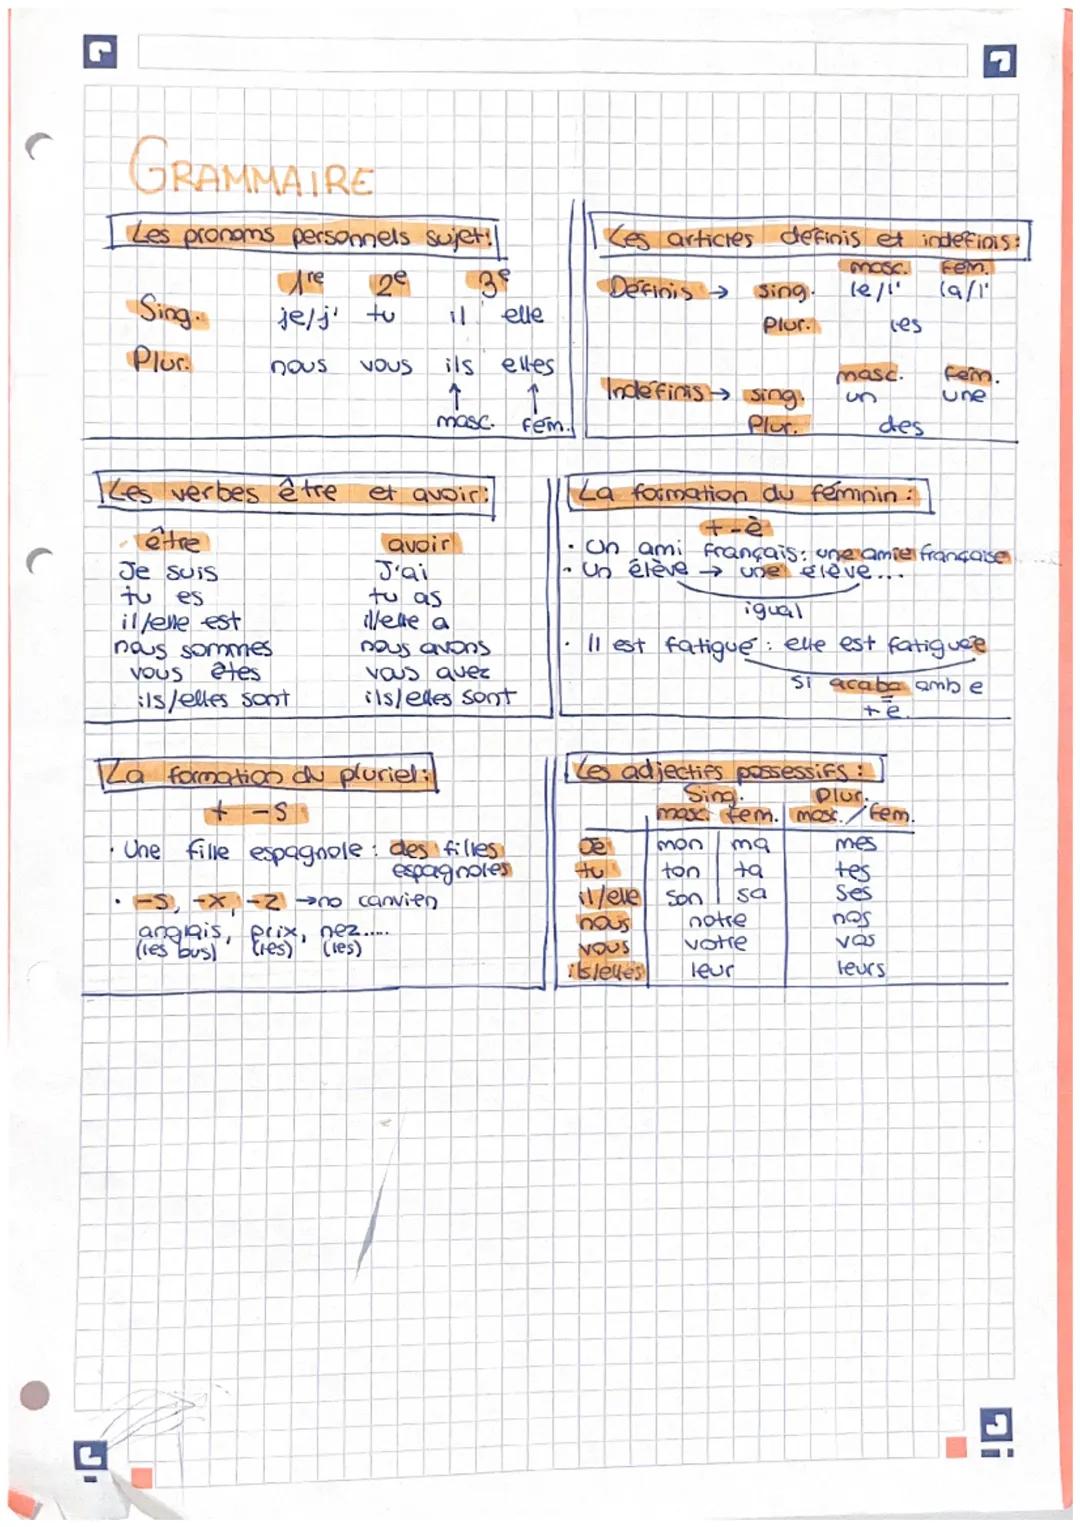 GRAMMAIRE
Les pronoms personnels sujet:
1re 2e 3e
Sing. je/j' tu il elle
Plur. nous vous ils elles
↑ ↑
masc. fém.
Les articles définis et indéfinis:
masc. Fém.
Définis → sing. le/l' la/l'
Plur. les
masc. Fém.
Indéfinis → sing. un une
Plur. des
Les verbes être et avoir:
être avoir
Je suis J'ai
tu es tu as
il/elle est il/elle a
nous sommes nous avons
vous êtes vous avez
ils/elles sont ils/elles sont
La formation du féminin:
+ -è
· Un ami français: une amie française
· Un élève → une élève...
igual
· Il est fatigué: elle est fatiguée
si acaba amb e
+ e.
La formation du pluriel:
+ -s
· Une fille espagnole: des filles
espagnoles
· -s, -x, -z → no canvien
anglais, prix, nez.....
(les bus) (les) (les)
Les adjectifs possessifs:
Sing. Plur.
masc. fem. masc./fem.
mon ma mes
tu ton ta tes
il/elle son sa ses
nous notre nos
vous votre vos
ils/elles leur leurs